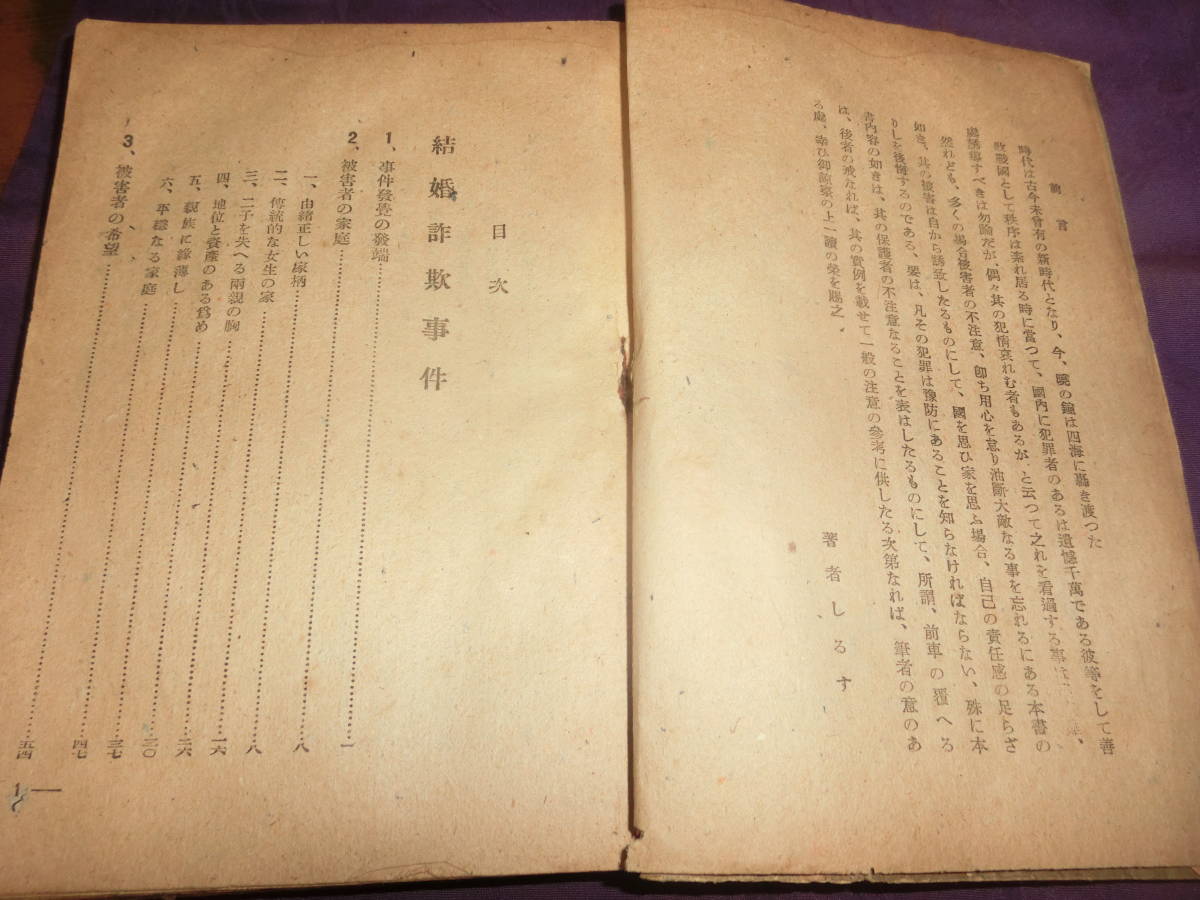 前言
時代は古今未曾有の新時代となり、今、曉の鐘は四海に轟き渡つた
敗戰國として秩序は紊れ居る時に當つて、國內に犯罪者のあるは遺憾千萬である彼等をして善
處誘導すべきは勿論だが、偶々其の犯情哀れむ者もあるが、と云つて之れを看過する事は
然れども、多くの場合被害者の不注意、卽ち用心を怠り油斷大敵なる事を忘れるにある本書の
如き、其の被害は自から誘致したるものにして、國を思ひ家を思ふ場合、自己の責任感の足らざ
りしを後悔するのである、要は、凡その犯罪は豫防にあることを知らなければならない、殊に本
書內容の如きは、其の保護者の不注意なることを表はしたるものにして、所謂、前車の覆へる
は、後者の戒なれば、其の實例を載せて一般の注意の參考に供したる次第なれば、筆者の意のあ
る處、幸ひ御諒察の上一讀の榮を賜之。
著者しるす
目次
結婚詐欺事件
1、事件發覺の發端……一
2、被害者の家庭……八
一、由緖正しい家柄……八
二、傳統的な女生の家……一六
三、二子を失へる兩親の胸……二六
四、地位と資產のある爲め……三〇
五、親族に緣薄し……三七
六、平穩なる家庭……四七
3、被害者の希望……五四
1